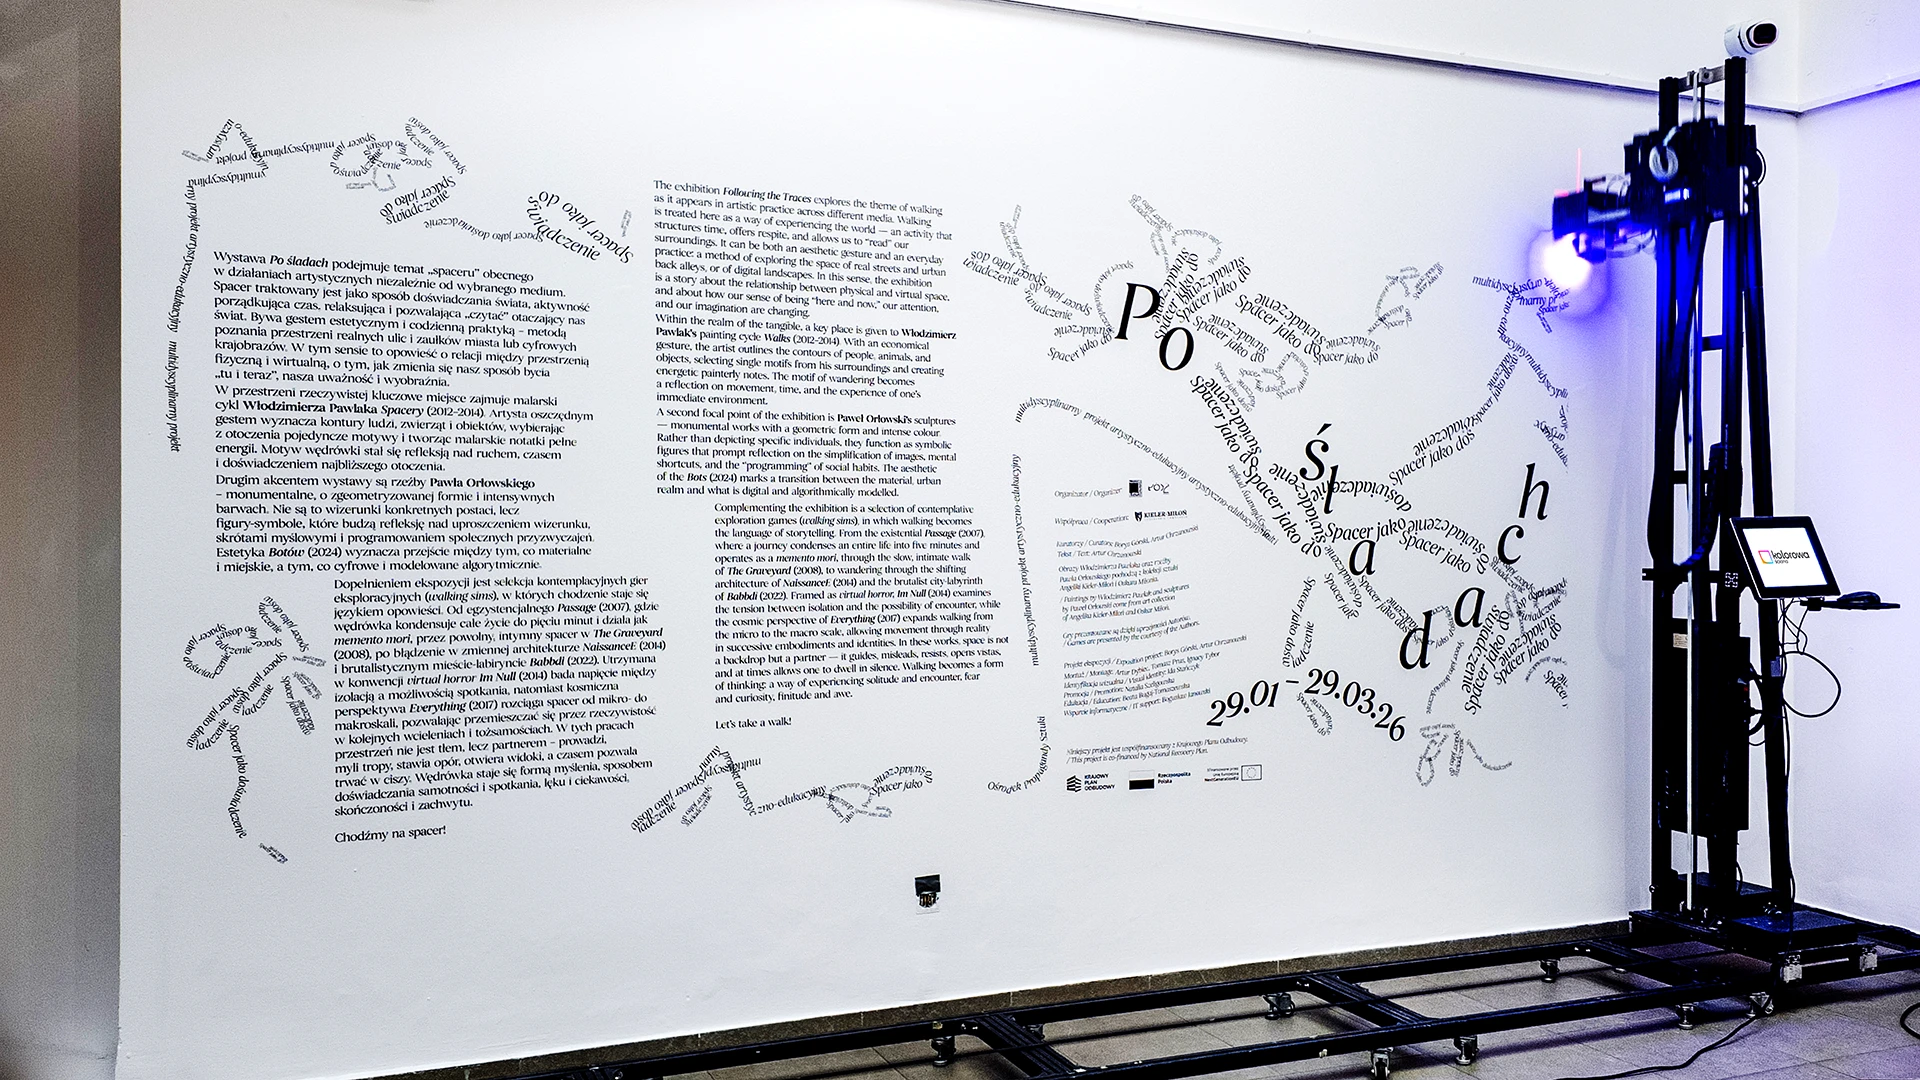 Wystawa Po śladach podejmuje temat „spaceru” obecnego
w działaniach artystycznych niezależnie od wybranego medium.
Spacer traktowany jest jako sposób doświadczania świata, aktywność
porządkująca czas, relaksująca i pozwalająca „czytać” otaczający nas
świat. Bywa gestem estetycznym i codzienną praktyką – metodą
poznania przestrzeni realnych ulic i zaułków miasta lub cyfrowych
krajobrazów. W tym sensie to opowieść o relacji między przestrzenią
fizyczną i wirtualną, o tym, jak zmienia się nasz sposób bycia
„tu i teraz”, nasza uważność i wyobraźnia.
W przestrzeni rzeczywistej kluczowe miejsce zajmuje malarski
cykl Włodzimierza Pawlaka Spacery (2012-2014). Artysta oszczędnym
gestem wyznacza kontury ludzi, zwierząt i obiektów, wybierając
z otoczenia pojedyncze motywy i tworząc malarskie notatki pełne
energii. Motyw wędrówki stał się refleksją nad ruchem, czasem
i doświadczeniem najbliższego otoczenia.
Drugim akcentem wystawy są rzeźby Pawła Orłowskiego
– monumentalne, o zgeometryzowanej formie i intensywnych
barwach. Nie są to wizerunki konkretnych postaci, lecz
figury-symbole, które budzą refleksję nad uproszczeniem wizerunku,
skrótami myślowymi i programowaniem społecznych przyzwyczajeń.
Estetyka Botów (2024) wyznacza przejście między tym, co materialne
i miejskie, a tym, co cyfrowe i modelowane algorytmicznie.
Dopełnieniem ekspozycji jest selekcja kontemplacyjnych gier
eksploracyjnych (walking sims), w których chodzenie staje się
językiem opowieści. Od egzystencjalnego Passage (2007), gdzie
wędrówka kondensuje całe życie do pięciu minut i działa jak
memento mori, przez powolny, intymny spacer w The Graveyard
(2008), po błądzenie w zmiennej architekturze NaissanceE (2014)
i brutalistycznym mieście-labiryncie Babbdi (2022). Utrzymana
w konwencji virtual horror Im Null (2014) bada napięcie między
izolacją a możliwością spotkania, natomiast kosmiczna
perspektywa Everything (2017) rozciąga spacer od mikro- do
makroskali, pozwalając przemieszczać się przez rzeczywistość
w kolejnych wcieleniach i tożsamościach. W tych pracach
przestrzeń nie jest tłem, lecz partnerem – prowadzi,
myli tropy, stawia opór, otwiera widoki, a czasem pozwala
trwać w ciszy. Wędrówka staje się formą myślenia, sposobem
doświadczania samotności i spotkania, lęku i ciekawości,
skończoności i zachwytu.
Chodźmy na spacer!
The exhibition Following the Traces explores the theme of walking
as it appears in artistic practice across different media. Walking
is treated here as a way of experiencing the world — an activity that
structures time, offers respite, and allows us to “read” our
surroundings. It can be both an aesthetic gesture and an everyday
practice: a method of exploring the space of real streets and urban
back alleys, or of digital landscapes. In this sense, the exhibition
is a story about the relationship between physical and virtual space,
and about how our sense of being “here and now,” our attention,
and our imagination are changing.
Within the realm of the tangible, a key place is given to Włodzimierz
Pawlak's painting cycle Walks (2012-2014). With an economical
gesture, the artist outlines the contours of people, animals, and
objects, selecting single motifs from his surroundings and creating
energetic painterly notes. The motif of wandering becomes
a reflection on movement, time, and the experience of one's
immediate environment.
A second focal point of the exhibition is Paweł Orłowski's sculptures
— monumental works with a geometric form and intense colour.
Rather than depicting specific individuals, they function as symbolic
figures that prompt reflection on the simplification of images, mental
shortcuts, and the “programming” of social habits. The aesthetic
of the Bots (2024) marks a transition between the material, urban
realm and what is digital and algorithmically modelled.
Complementing the exhibition is a selection of contemplative
exploration games (walking sims), in which walking becomes
the language of storytelling. From the existential Passage (2007),
where a journey condenses an entire life into five minutes and
operates as a memento mori, through the slow, intimate walk
of The Graveyard (2008), to wandering through the shifting
architecture of NaissanceE (2014) and the brutalist city-labyrinth
of Babbdi (2022). Framed as virtual horror, Im Null (2014) examines
the tension between isolation and the possibility of encounter, while
the cosmic perspective of Everything (2017) expands walking from
the micro to the macro scale, allowing movement through reality
in successive embodiments and identities. In these works, space is not
a backdrop but a partner — it guides, misleads, resists, opens vistas,
and at times allows one to dwell in silence. Walking becomes a form
of thinking: a way of experiencing solitude and encounter, fear
and curiosity, finitude and awe.
Let's take a walk!
Po śladach
29.01 – 29.03.26
Organizator / Organizer:
Współpraca / Cooperation: KIELER-MILOŃ
Kuratorzy / Curators: Borys Górski, Artur Chrzanowski
Tekst / Text: Artur Chrzanowski
Obrazy Włodzimierza Pawlaka oraz rzeźby
Pawła Orłowskiego pochodzą z kolekcji sztuki
Angeliki Kieler-Miloń i Oskara Milonia.
/ Paintings by Włodzimierz Pawlak and sculptures
by Paweł Orłowski come from art collection
of Angelika Kieler-Miloń and Oskar Miloń.
Gry prezentowane są dzięki uprzejmości Autorów.
/ Games are presented by the courtesy of the Authors.
Projekt ekspozycji / Exposition project: Borys Górski, Artur Chrzanowski
Montaż / Montage: Artur Dybiec, Tomasz Prus, Ignacy Tybor
Identyfikacja wizualna / Visual identity: Ida Stańczyk
Promocja / Promotion: Natalia Szelągowska
Edukacja / Education: Beata Bugaj-Tomaszewska
Wsparcie Informatyczne / IT support: Bogusław Janowski
Niniejszy projekt jest współfinansowany z Krajowego Planu Odbudowy.
/ This project is co-financed by National Recovery Plan.
KRAJOWY
PLAN
ODBUDOWY
Rzeczpospolita
Polska
Sfinansowane przez
Unię Europejską
NextGenerationEU
Ośrodek Propagandy Sztuki
multidyscyplinarny projekt artystyczno-edukacyjny
multidyscyplinarny projekt artystyczno-edukacyjny
Spacer jako doświadczenie
Spacer jako doświadczenie
Spacer jako doświadczenie
kolorowa